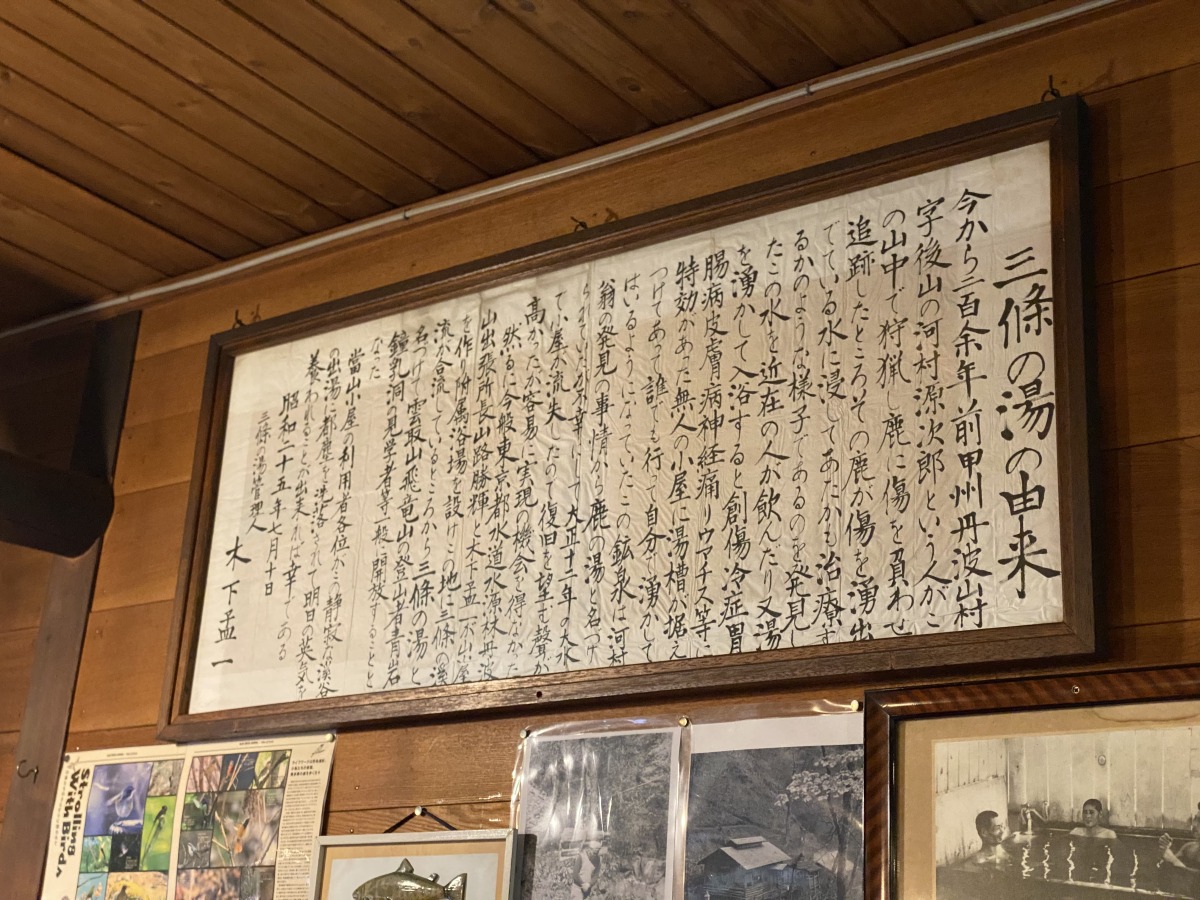 三條の湯の由来
今から二百余年前甲州丹波山村
字後山の河村源次郎という人がこ
の山中で狩猟し鹿に傷を負わせ
追跡したところその鹿が傷を湧出
でている水に浸してあたかも治療す
るかのような様子であるのを発見し
たこの水を近在の人が飲んだり又湯
を湧かして入浴すると創傷冷症胃
腸病皮膚病神経痛リウマチス等に
特効があった無人の小屋に湯槽が据え
つけてあって誰でも行って自分で湧かして
はいるようになっていたこの鉱泉は河村
翁の発見の事情から鹿の湯と名づけ
られていたが不幸にして大正十二年の大水
で小屋が流失したので復旧を望む聲が
高かったが容易に実現の機会を得なかった
然るに今般東京都水道水源林丹波
山出張所長山路勝輝と木下孟一が山屋
を作り附属浴場を設けこの地に三條の溪
流が合流しているところから三條の湯と
名づけて雲取山飛竜山の登山者青岩
鐘乳洞の見学者等一般に開放することと
なった
當山小屋の利用者各位がこの静寂な渓谷
の出湯に都塵を洗落されて明日の英気を
養われることが出来れば幸である
昭和二十五年七月十日
三條の湯管理人
木下孟一
Strolling
With Birds